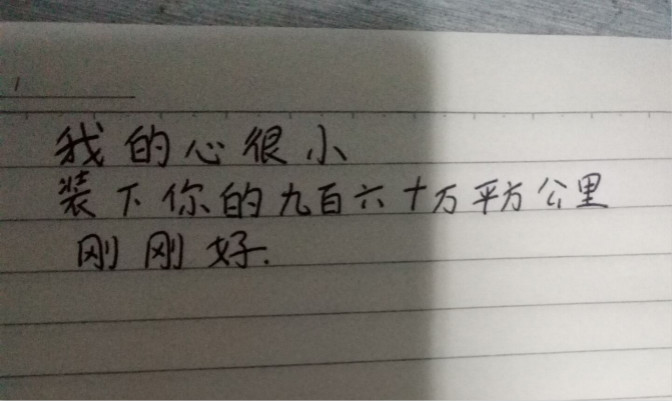 我的心很小
装下你的九百六十万平方公里
刚刚好.